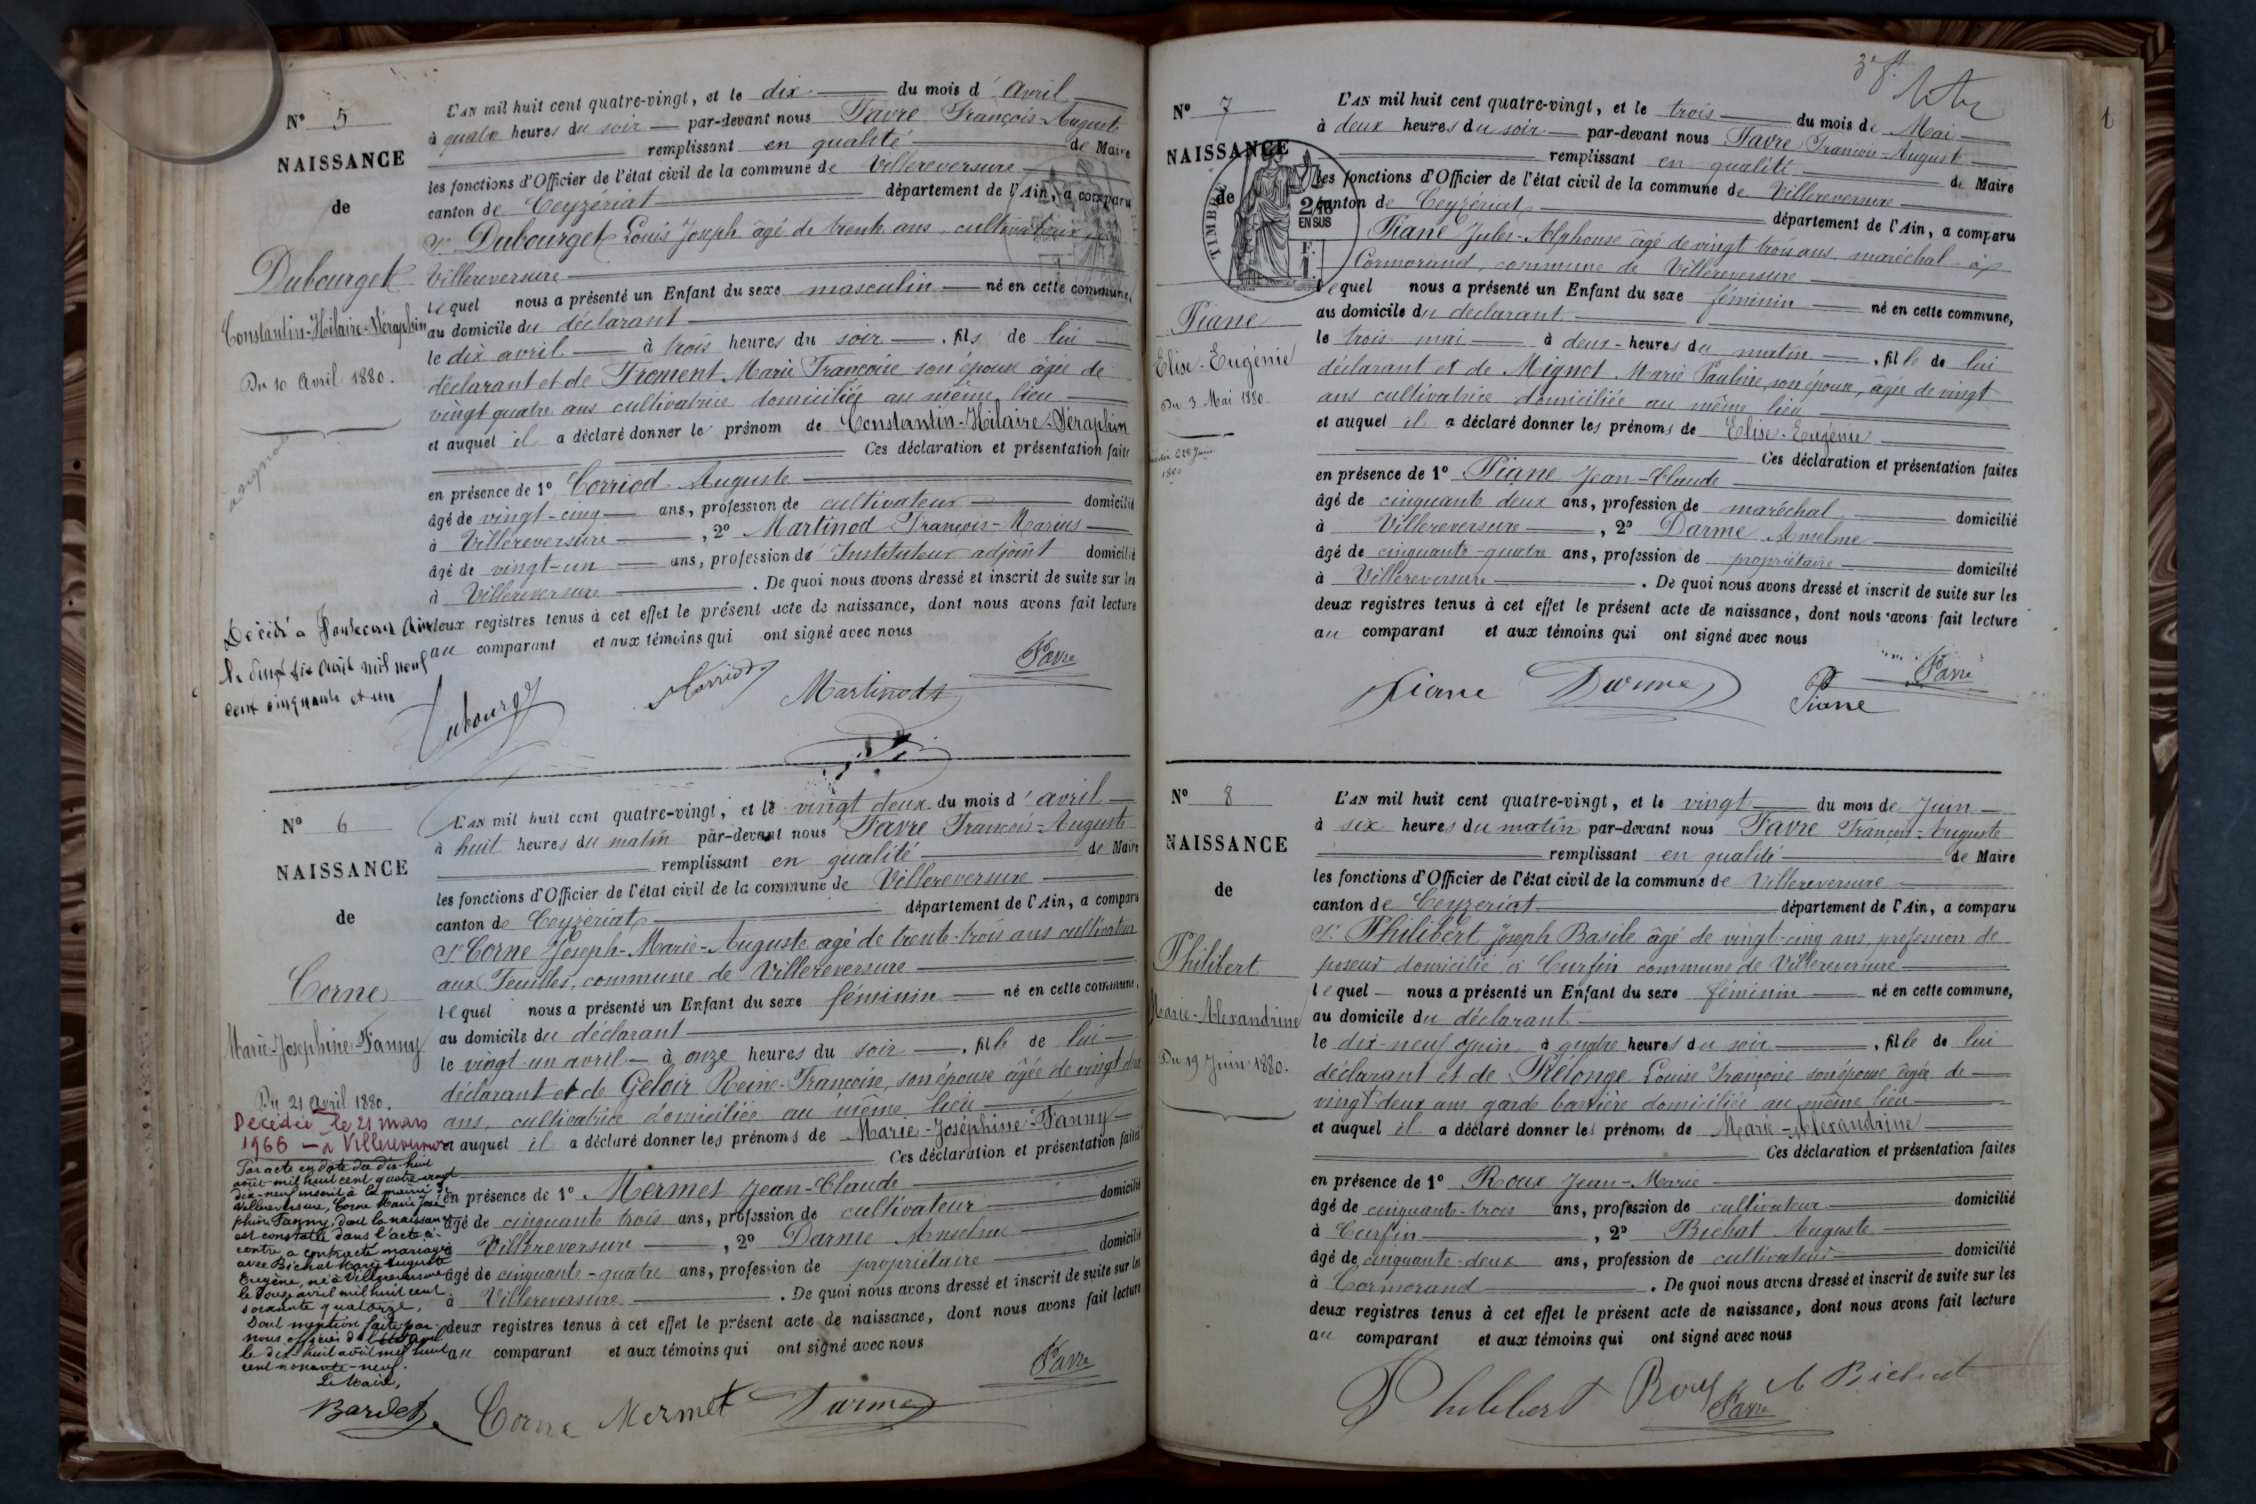 N° 5
NAISSANCE
de
Dubourget
Constantin-Hilaire-Séraphin
Du 10 Avril 1880.
Décédé à
le vingt six Août mil neuf
cent cinquante et un
L'AN mil huit cent quatre-vingt, et le dix du mois d'Avril
à quatre heures du soir par-devant nous Favre François-Auguste
remplissant en qualité de Maire
les fonctions d'Officier de l'état civil de la commune de Villereversure
canton de Ceyzériat département de l'Ain, a comparu
Sr Dubourget Louis Joseph âgé de trente ans, cultivateur à
Villereversure
lequel nous a présenté un Enfant du sexe masculin né en cette commune,
au domicile du déclarant
le dix avril à trois heures du soir, fils de lui
déclarant et de Froment Marie Françoise son épouse âgée de
vingt quatre ans cultivatrice domiciliée au même lieu
et auquel il a déclaré donner le prénom de Constantin-Hilaire-Séraphin
Ces déclaration et présentation faites
en présence de 1° Corriod Auguste
âgé de vingt-cinq ans, profession de cultivateur domicilié
à Villereversure, 2° Martinod François-Marius
âgé de vingt-un ans, profession de Instituteur adjoint domicilié
à Villereversure. De quoi nous avons dressé et inscrit de suite sur les
deux registres tenus à cet effet le présent acte de naissance, dont nous avons fait lecture
au comparant et aux témoins qui ont signé avec nous
Dubourget Corriod Martinod Favre
N° 6
NAISSANCE
de
Corne
Marie-Joséphine-Fanny
Du 21 avril 1880.
Décédée le 21 mars
1966 - à Villereversure
Par acte en date du dix-huit
août mil huit cent quatre-vingt
dix-neuf inscrit à la mairie de
Villereversure, Corne Marie José-
phine Fanny, dont la naissance
est constatée dans l'acte ci-
contre, a contracté mariage
avec Bichat Marie Auguste
Eugène, né à Villereversure
le douze avril mil huit cent
soixante quatorze,
Dont mention faite par
nous officier de l'état civil
le dix huit août mil huit
cent nonante-neuf.
Le Maire,
Bardet
L'AN mil huit cent quatre-vingt, et le vingt deux du mois d'avril
à huit heures du matin par-devant nous Favre François-Auguste
remplissant en qualité de Maire
les fonctions d'Officier de l'état civil de la commune de Villereversure
canton de Ceyzériat département de l'Ain, a comparu
Sr Corne Joseph-Marie-Auguste âgé de trente-trois ans cultivateur
aux Feuilles, commune de Villereversure
lequel nous a présenté un Enfant du sexe féminin né en cette commune,
au domicile du déclarant
le vingt un avril à onze heures du soir, fille de lui
déclarant et de Geloir Reine-Françoise, son épouse âgée de vingt deux
ans, cultivatrice domiciliée au même lieu
et auquel il a déclaré donner les prénoms de Marie-Joséphine-Fanny
Ces déclaration et présentation faites
en présence de 1° Mermet Jean-Claude
âgé de cinquante trois ans, profession de cultivateur domicilié
à Villereversure, 2° Darme Anselme
âgé de cinquante-quatre ans, profession de propriétaire domicilié
à Villereversure. De quoi nous avons dressé et inscrit de suite sur les
deux registres tenus à cet effet le présent acte de naissance, dont nous avons fait lecture
au comparant et aux témoins qui ont signé avec nous
Corne Mermet Darme Favre
3e f.
N° 7
NAISSANCE
de
TIMBRE
2/10
EN SUS
Piane
Elise-Eugénie
Du 3 Mai 1880
L'AN mil huit cent quatre-vingt, et le trois du mois de Mai
à deux heures du soir par-devant nous Favre François-Auguste
remplissant en qualité de Maire
les fonctions d'Officier de l'état civil de la commune de Villereversure
canton de Ceyzériat département de l'Ain, a comparu
Piane Jules-Alphonse âgé de vingt trois ans, maréchal à
Cormorand, commune de Villereversure
lequel nous a présenté un Enfant du sexe féminin né en cette commune,
au domicile du déclarant
le trois mai à deux heures du matin, fille de lui
déclarant et de Mignot Marie Pauline, son épouse, âgée de vingt
ans cultivatrice domiciliée au même lieu
et auquel il a déclaré donner les prénoms de Elise-Eugénie
Ces déclaration et présentation faites
en présence de 1° Piane Jean-Claude
âgé de cinquante deux ans, profession de maréchal domicilié
à Villereversure, 2° Darme Anselme
âgé de cinquante-quatre ans, profession de propriétaire domicilié
à Villereversure. De quoi nous avons dressé et inscrit de suite sur les
deux registres tenus à cet effet le présent acte de naissance, dont nous avons fait lecture
au comparant et aux témoins qui ont signé avec nous
Piane Darme Piane Favre
N° 8
NAISSANCE
de
Philibert
Marie-Alexandrine
Du 19 Juin 1880.
L'AN mil huit cent quatre-vingt, et le vingt du mois de Juin
à six heures du matin par-devant nous Favre François-Auguste
remplissant en qualité de Maire
les fonctions d'Officier de l'état civil de la commune de Villereversure
canton de Ceyzériat département de l'Ain, a comparu
Sr Philibert Joseph Basile âgé de vingt-cinq ans, profession de
poseur domicilié à Curfin commune de Villereversure
lequel nous a présenté un Enfant du sexe féminin né en cette commune,
au domicile du déclarant
le dix-neuf juin à quatre heures du soir, fille de lui
déclarant et de Rélonge Louise Françoise son épouse âgée de
vingt deux ans garde barrière domiciliée au même lieu
et auquel il a déclaré donner les prénoms de Marie-Alexandrine
Ces déclaration et présentation faites
en présence de 1° Roux Jean-Marie
âgé de cinquante-trois ans, profession de cultivateur domicilié
à Curfin, 2° Bichat Auguste
âgé de cinquante-deux ans, profession de cultivateur domicilié
à Cormorand. De quoi nous avons dressé et inscrit de suite sur les
deux registres tenus à cet effet le présent acte de naissance, dont nous avons fait lecture
au comparant et aux témoins qui ont signé avec nous
Philibert Roux A Bichat
Favre